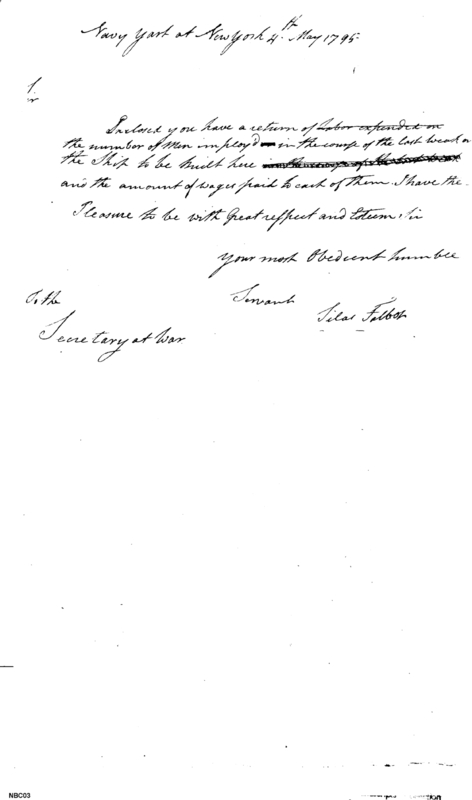 Navy Yard at New York 4th May 1795
Sir
Inclosed you have a return of Labor expended on
the number of Men imploy'd in the course of the last week on
the Ship to be built here in the course of the last week
and the amount of wages paid to each of them. I have the
Pleasure to be with Great respect and Esteem, Sir
your most Obedient humble
Servant
Silas Talbot
To the
Secretary at War
NBC03